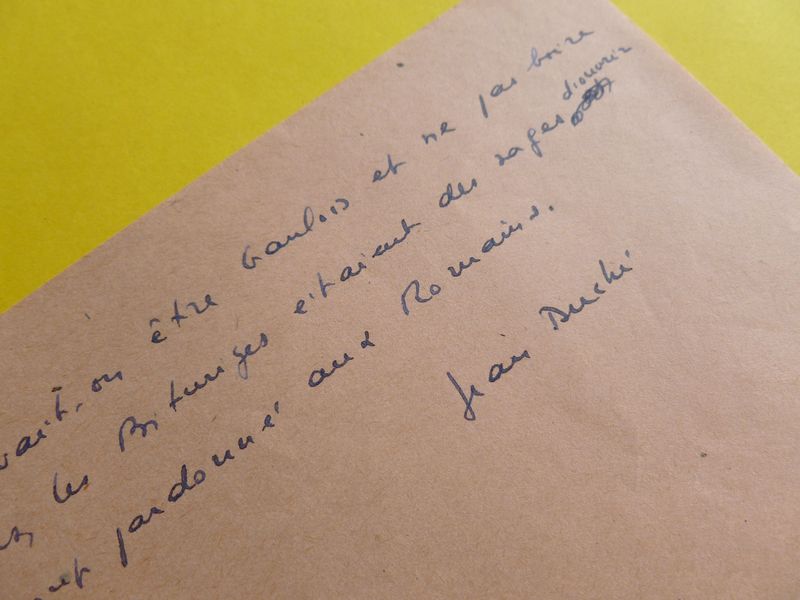 vait-on être Gaulois et ne pas boire
les Bituriges étaient des sages d'ouvrir
pardonné aux Romains.
Jean Duché